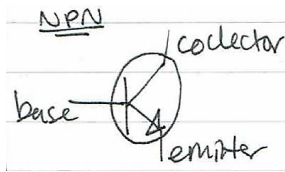 NPN
collector
base
emitter